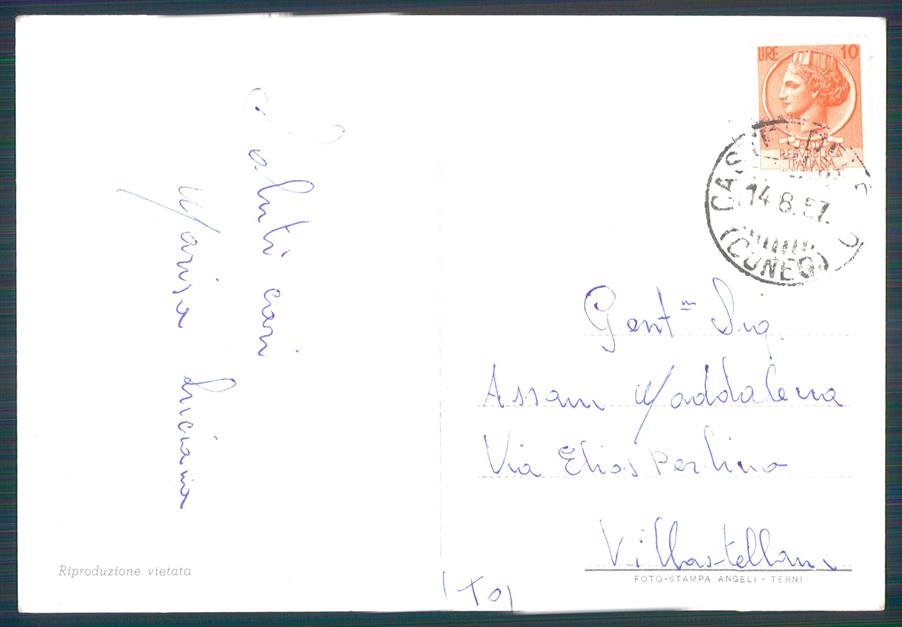 Saluti cari
Marisa Luciana
LIRE 10
REPVBBLICA
ITALIANA
14.8.57.
(CUNEO)
Gent.m Sig.
Assam Maddalena
Via
Villastellone
(TO)
Riproduzione vietata
FOTO-STAMPA ANGELI - TERNI